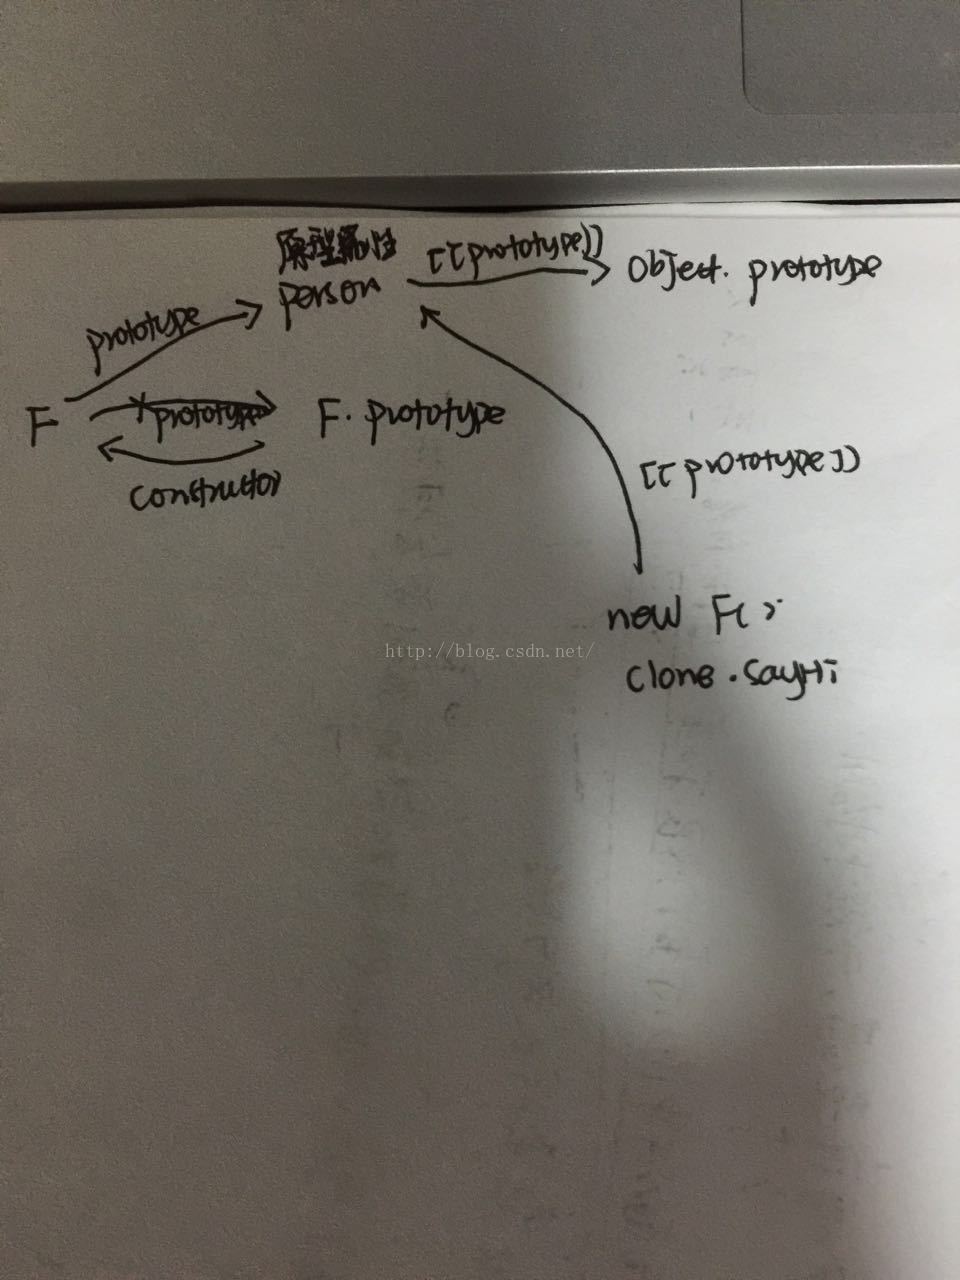 原型
person
[[prototype]]
Object. prototype
prototype
F
prototype
F. prototype
constructor
[[prototype]]
new F()
clone.sayHi
http://blog.csdn.net/